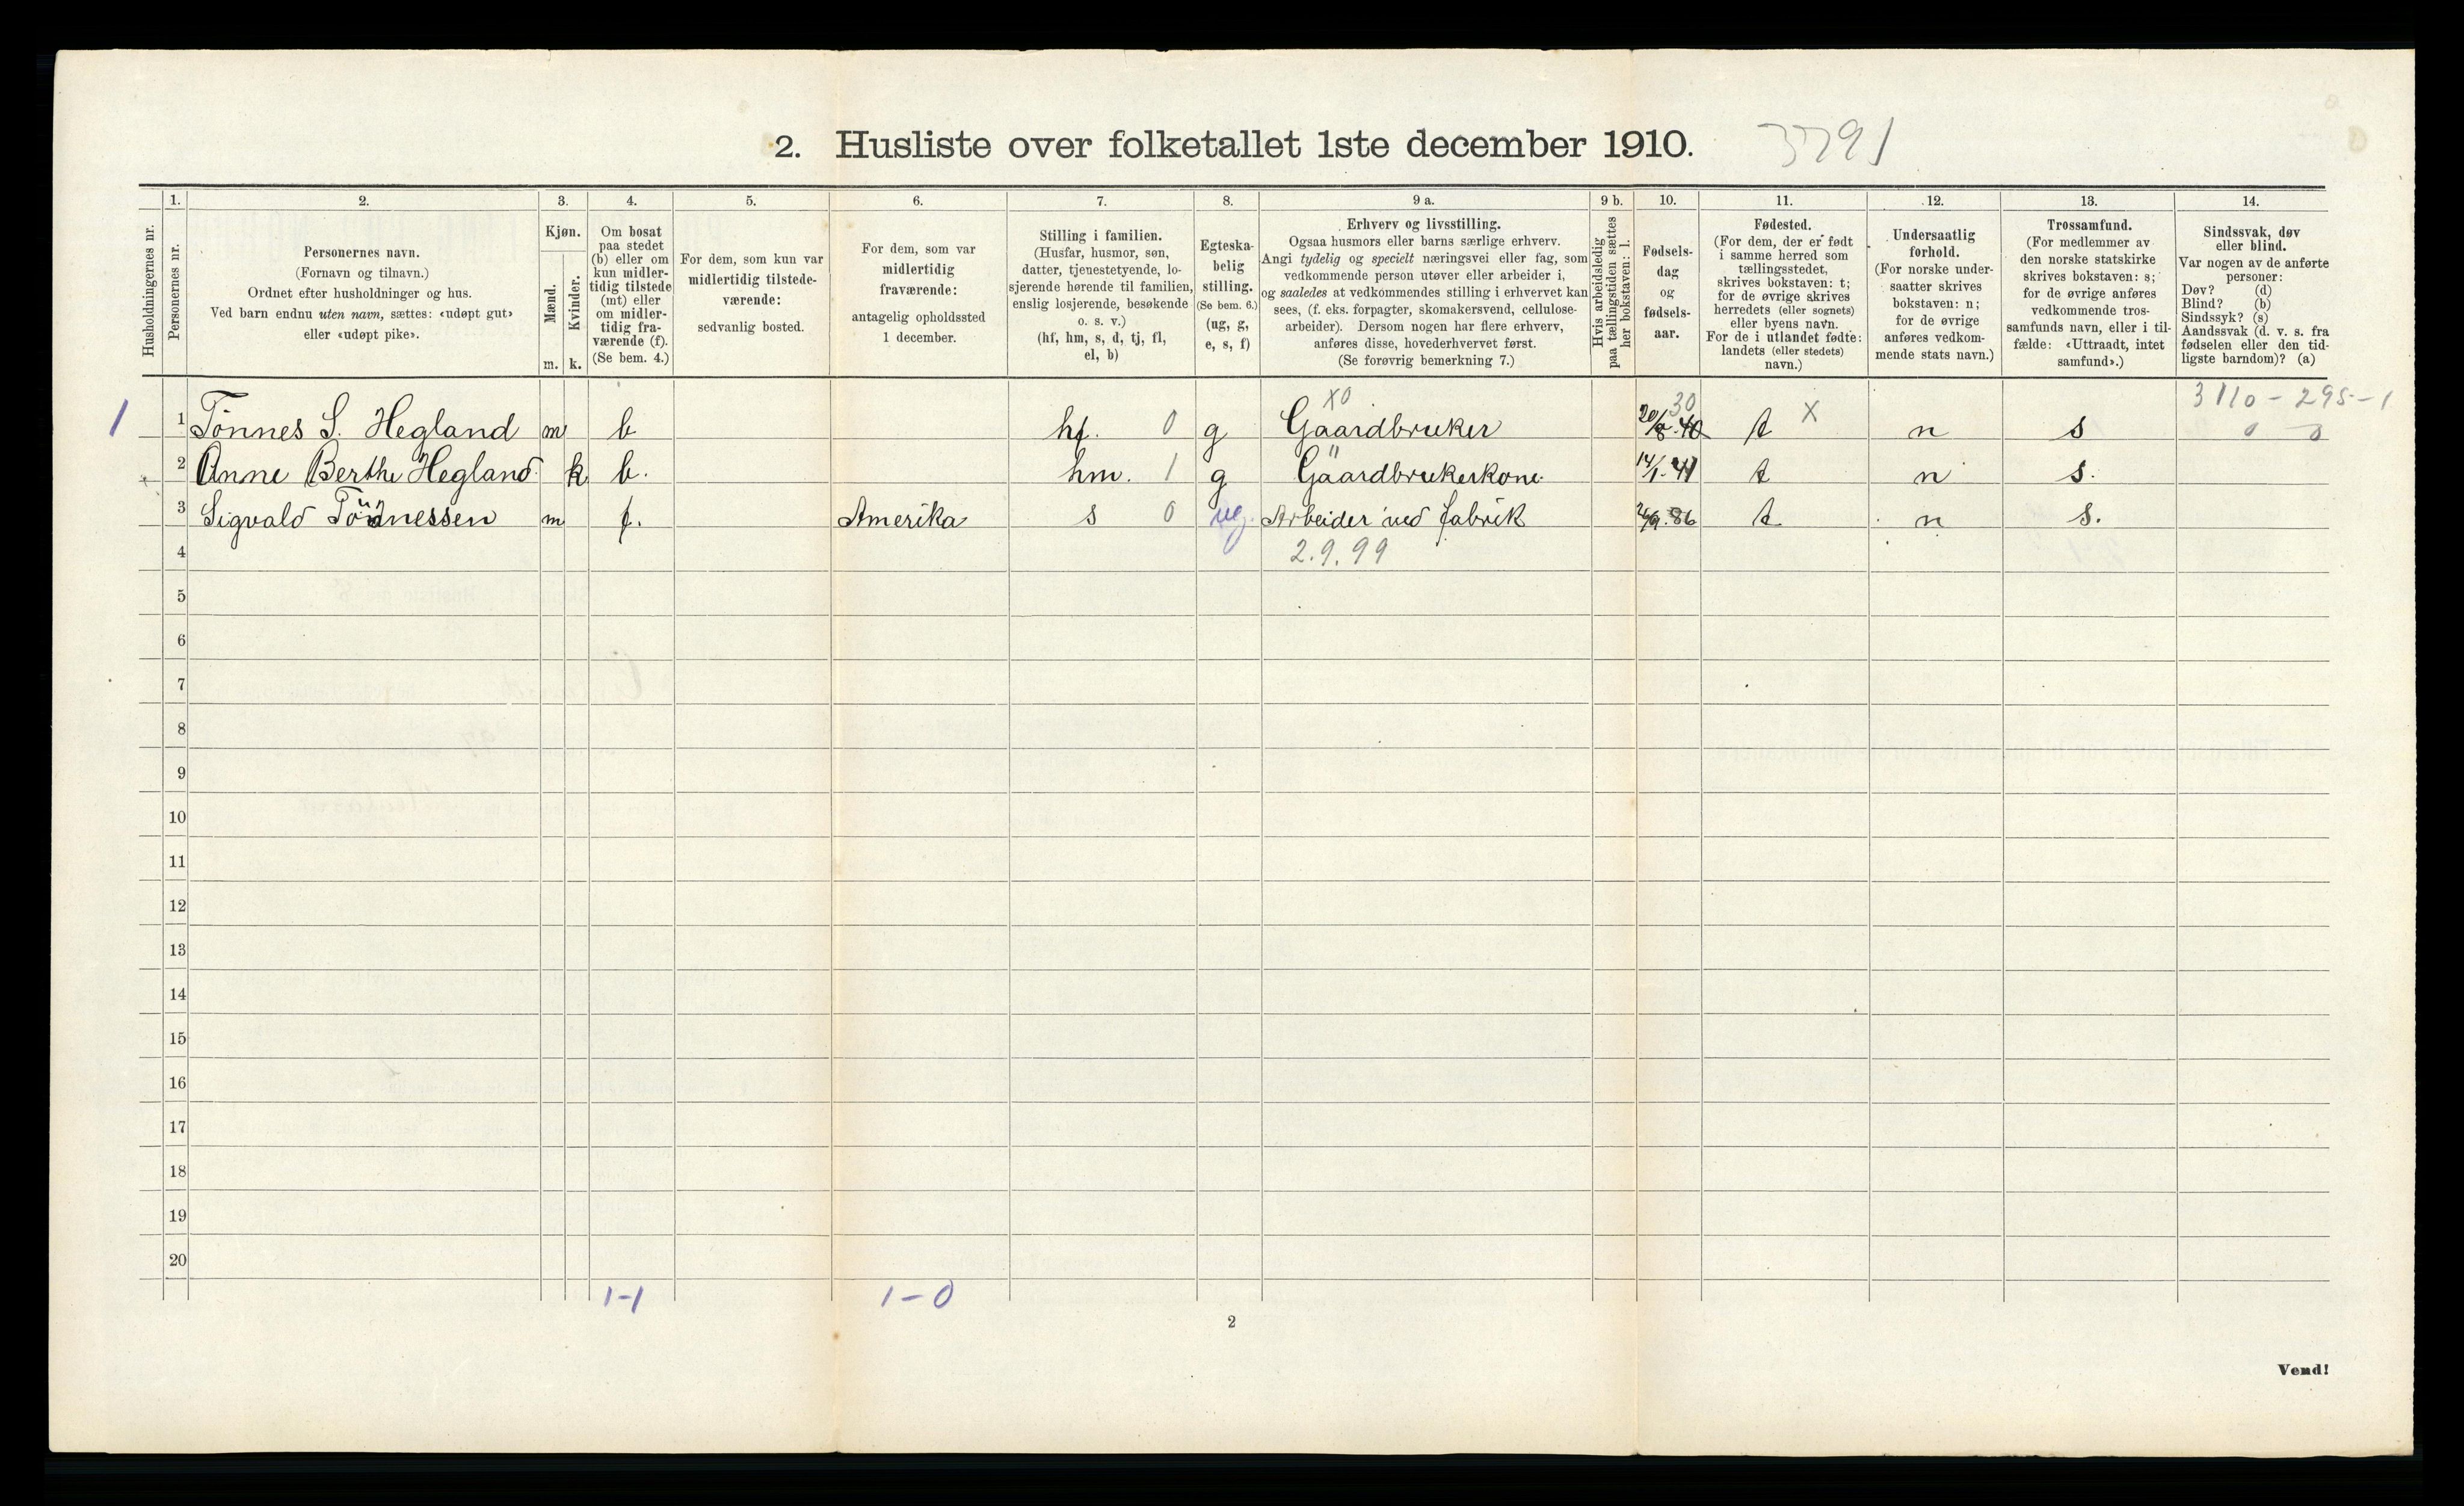 2. Husliste over folketallet 1ste december 1910. 3791
Husholdningernes nr.
1. Personernes nr.
2.
Personernes navn.
(Fornavn og tilnavn.)
Ordnet efter husholdninger og hus.
Ved barn endnu uten navn, sættes: «udøpt gut»
eller «udøpt pike».
3.
Kjøn.
Mænd. Kvinder.
m. k.
4.
Om bosat
paa stedet
(b) eller om
kun midler-
tidig tilstede
(mt) eller
om midler-
tidig fra-
værende (f).
(Se bem. 4.)
5.
For dem, som kun var
midlertidig tilstede-
værende:
sedvanlig bosted.
6.
For dem, som var
midlertidig
fraværende:
antagelig opholdssted
1 december.
7.
Stilling i familien.
(Husfar, husmor, søn,
datter, tjenestetyende, lo-
sjerende hørende til familien,
enslig losjerende, besøkende
o. s. v.)
(hf, hm, s, d, tj, fl,
el, b)
8.
Egteska-
belig
stilling.
(Se bem. 6.)
(ug, g,
e, s, f)
9 a.
Erhverv og livsstilling.
Ogsaa husmors eller barns særlige erhverv.
Angi tydelig og specielt næringsvei eller fag, som
vedkommende person utøver eller arbeider i,
og saaledes at vedkommendes stilling i erhvervet kan
sees, (f. eks. forpagter, skomakersvend, cellulose-
arbeider). Dersom nogen har flere erhverv,
anføres disse, hovederhvervet først.
(Se forøvrig bemerkning 7.)
9 b.
Hvis arbeidsledig
paa tællingstiden sættes
her bokstaven: l.
10.
Fødsels-
dag
og
fødsels-
aar.
11.
Fødested.
(For dem, der er født
i samme herred som
tællingsstedet,
skrives bokstaven: t;
for de øvrige skrives
herredets (eller sognets)
eller byens navn.
For de i utlandet fødte:
landets (eller stedets)
navn.)
12.
Undersaatlig
forhold.
(For norske under-
saatter skrives
bokstaven: n;
for de øvrige
anføres vedkom-
mende stats navn.)
13.
Trossamfund.
(For medlemmer av
den norske statskirke
skrives bokstaven: s;
for de øvrige anføres
vedkommende tros-
samfunds navn, eller i til-
fælde: «Uttraadt, intet
samfund».)
14.
Sindssvak, døv
eller blind.
Var nogen av de anførte
personer:
Døv? (d)
Blind? (b)
Sindssyk? (s)
Aandssvak (d. v. s. fra
fødselen eller den tid-
ligste barndom)? (a)
X0 30 X 3110 - 295 - 1
1 1 Tönnes S. Hegland m b hf. 0 g Gaardbruker 20/8 40 t n s 0 0
2 Anne Berthe Hegland k b. hm. 1 g Gaardbrukerkone 14/1. 41 t n s.
3 Sigvald Tönnessen m f. Amerika s 0 ug. Arbeider ved fabrik 86 t n s.
4 2.9.99
5
6
7
8
9
10
11
12
13
14
15
16
17
18
19
20
1-1 1-0
2
Vend!